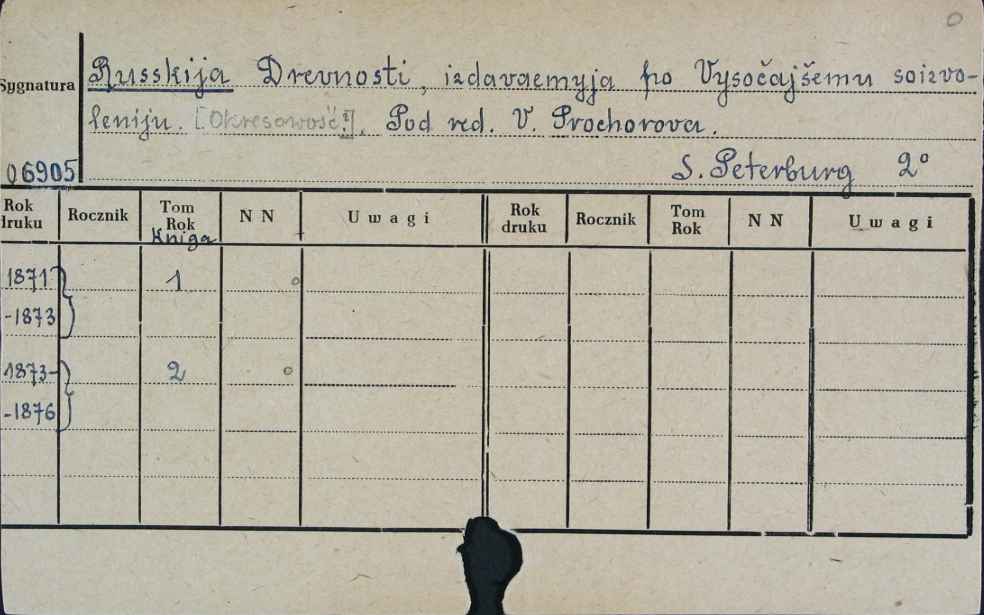 Sygnatura
Russkija Drevnosti, izdavaemyja po Vysočajšemu soizvo-
leniju. [Okresowość?]. Pod red. V. Prochorova.
06905
S. Peterburg 2°
Rok druku Rocznik Tom Rok Kniga N N Uwagi Rok druku Rocznik Tom Rok N N Uwagi
1871 1
-1873
1873- 2
-1876